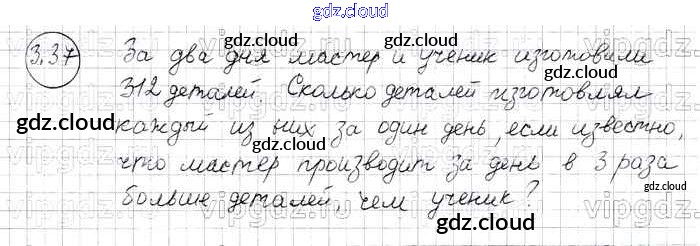 gdz.cloud
3.37 За два дня мастер и ученик изготовили
312 деталей. Сколько деталей изготовлял
gdz.cloud gdz.cloud
каждый из них за один день, если известно,
gdz.cloud
что мастер производит за день в 3 раза
gdz.cloud
больше деталей, чем ученик?
gdz.cloud gdz.cloud
gdz.cloud